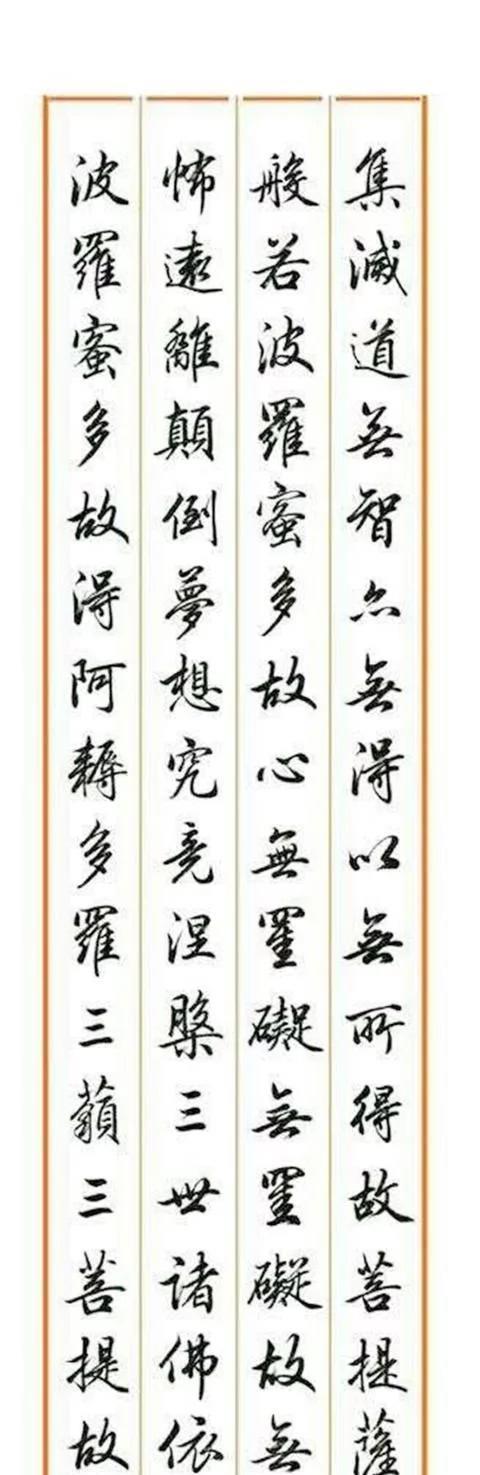 集滅道無智亦無得以無所得故菩提薩
般若波羅蜜多故心無罣礙無罣礙故無
怖遠離顛倒夢想究竟涅槃三世諸佛依
波羅蜜多故得阿耨多羅三藐三菩提故